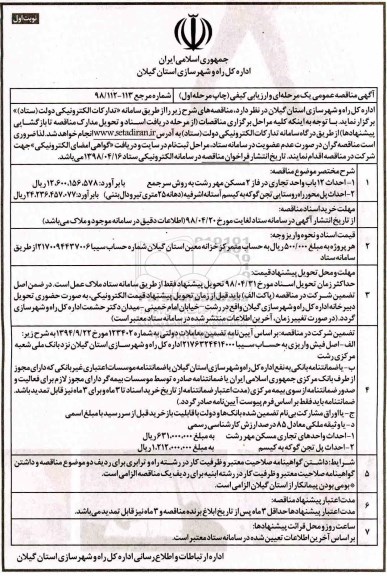 نوبت اول
جمهوری اسلامی ایران
اداره کل راه و شهرسازی استان گیلان
آگهی مناقصه عمومی یک مرحله‌ای و ارزیابی کیفی (چاپ مرحله اول) شماره مرجع ۱۱۳-۹۸/۱۱۲
اداره کل راه و شهرسازی استان گیلان در نظر دارد، مناقصه‌های شرح زیر را از طریق سامانه «تدارکات الکترونیکی دولت (ستاد)»
برگزار نماید. با توجه به اینکه کلیه مراحل برگزاری مناقصات (از مرحله دریافت اسناد و تحویل مدارک مناقصه تا بازگشایی
پیشنهادها) از طریق درگاه سامانه تدارکات الکترونیکی دولت (ستاد) به آدرس www.setadiran.ir انجام خواهد شد. لذا ضروری
است مناقصه‌گران در صورت عدم عضویت در سامانه ستاد، مراحل ثبت‌نام در سایت و دریافت «گواهی امضای الکترونیکی» جهت
شرکت در مناقصه اقدام نمایند. تاریخ انتشار فراخوان مناقصه در سامانه الکترونیکی ستاد ۱۳۹۸/۰۴/۱۶ می‌باشد.
شرح مختصر موضوع مناقصه:
۱ ۱- احداث ۱۲ باب واحد تجاری در فاز ۲ مسکن مهر رشت به روش سرجمع بابرآورد: ۱۲.۶۰۰.۱۵۶.۵۷۸ ریال
۲- احداث پل محور راه روستایی لجن گوکه به کیسم آستانه اشرفیه (دهانه ۲۵ متری تیرودال بتنی) بابرآورد: ۲۴.۲۳۶.۴۵۷.۰۷۷ ریال
مهلت خرید اسناد مناقصه:
از تاریخ انتشار آگهی در سامانه ستاد لغایت مورخ ۹۸/۰۴/۲۰ (اطلاعات دقیق در سامانه موجود و ملاک می‌باشد)
قیمت اسناد و نحوه واریز وجه:
۲ هر پروژه به مبلغ ۵۰۰/۰۰۰ ریال به حساب متمرکز خزانه معین استان گیلان شماره حساب سیبا ۲۱۷۰۰۹۴۴۳۷۰۰۶ از طریق
سامانه ستاد
مهلت و محل تحویل پیشنهاد قیمت:
حداکثر زمان تحویل اسناد مورخ ۹۸/۰۴/۳۱ تحویل پیشنهاد فقط از طریق سامانه ستاد ملاک عمل است. در ضمن اصل
۳ تضمین شرکت در مناقصه (پاکت الف) باید قبل از زمان تحویل پیشنهاد قیمت الکترونیکی، به صورت حضوری تحویل
دبیرخانه اداره کل راه و شهرسازی گیلان واقع در رشت- خیابان امام خمینی- میدان دکتر حشمت اداره کل راه و شهرسازی
گردد. (در صورت تغییر زمان، آخرین اطلاعات منتشر شده در سامانه ستاد معتبر است)
تضمین شرکت در مناقصه: بر اساس آیین‌نامه تضمین معاملات دولتی به شماره ۱۲۳۴۰۲ مورخ ۱۳۹۴/۹/۲۲ به شرح زیر:
الف- اصل فیش واریزی به حساب سیبا ۲۱۷۶۳۲۴۴۱۴۰۰۰ اداره کل راه و شهرسازی استان گیلان نزد بانک ملی شعبه
مرکزی رشت
ب- یا ضمانتنامه بانکی به نفع اداره کل راه و شهرسازی استان گیلان یا ضمانتنامه موسسات اعتباری غیر بانکی که دارای مجوز
۴ از طرف بانک مرکزی جمهوری اسلامی ایران یا ضمانتنامه صادره توسط موسسات بیمه‌گر دارای مجوز لازم برای فعالیت و
صدور ضمانتنامه از سوی بیمه مرکزی (مدت اعتبار ضمانتنامه از تاریخ خرید اسناد تا ۳ ماه و برای ۳ ماه نیز قابل تمدید باشد.
ضمانتنامه باید فقط بر اساس فرم پیوست آیین‌نامه صادر گردد.)
ج- یا اوراق مشارکت بی‌نام تضمین شده بانک‌ها و دولت با قابلیت بازخرید قبل از سررسید با مبلغ اسمی
د- یا وثیقه ملکی معادل ۸۵ درصد ارزش کارشناسی رسمی
۱- احداث واحدهای تجاری مسکن مهر رشت به مبلغ ۶۳۱.۰۰۰.۰۰۰ ریال
۲- احداث پل لجن گوکه به کیسم به مبلغ ۱.۲۱۲.۰۰۰.۰۰۰ ریال
شرایط: داشتن گواهینامه صلاحیت معتبر و ظرفیت کار در رشته راه و ترابری برای ردیف دو موضوع مناقصه و داشتن
۵ گواهینامه صلاحیت معتبر و ظرفیت کار در رشته ابنیه برای ردیف یک مناقصه الزامی است.
* بومی بودن پیمانکار از استان گیلان الزامی است.
۶ مدت اعتبار پیشنهاد مناقصه:
مدت اعتبار پیشنهادها حداقل ۳ ماه پس از تاریخ ابلاغ برنده مناقصه و ۳ ماه نیز قابل تمدید می‌باشد.
۷ ساعت روز و محل قرائت پیشنهادها:
بر اساس آخرین اطلاعات تعیین شده در سامانه ستاد معتبر است.
اداره ارتباطات و اطلاع‌رسانی اداره کل راه و شهرسازی استان گیلان